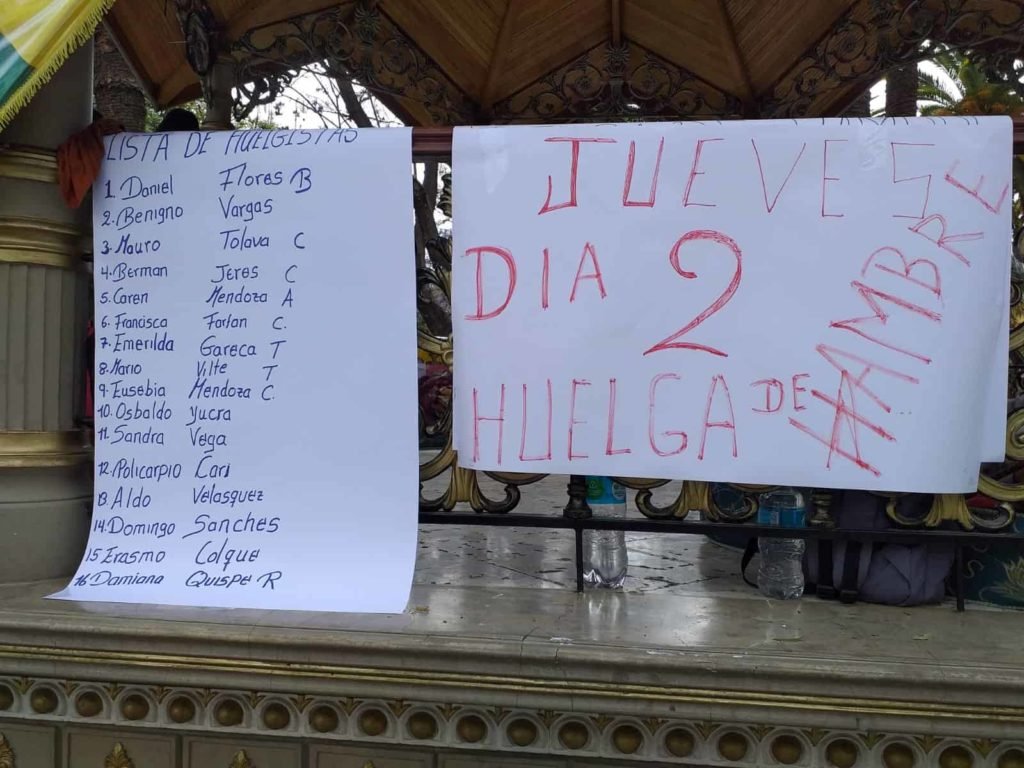 LISTA DE HUELGISTAS
1. Daniel Flores B
2. Benigno Vargas
3. Mauro Tolava C
4. Berman Jeres C
5. Caren Mendoza A
6. Francisca Farfan C.
7. Emerilda Gareca T
8. Mario Vilte T
9. Eusebia Mendoza C.
10. Osbaldo Yucra
11. Sandra Vega
12. Policarpio Cari
13. Aldo Velasquez
14. Domingo Sanches
15 Erasmo Colque
16 Damiana QUISPE R
JUEVES
DIA 2
HUELGA DE HAMBRE